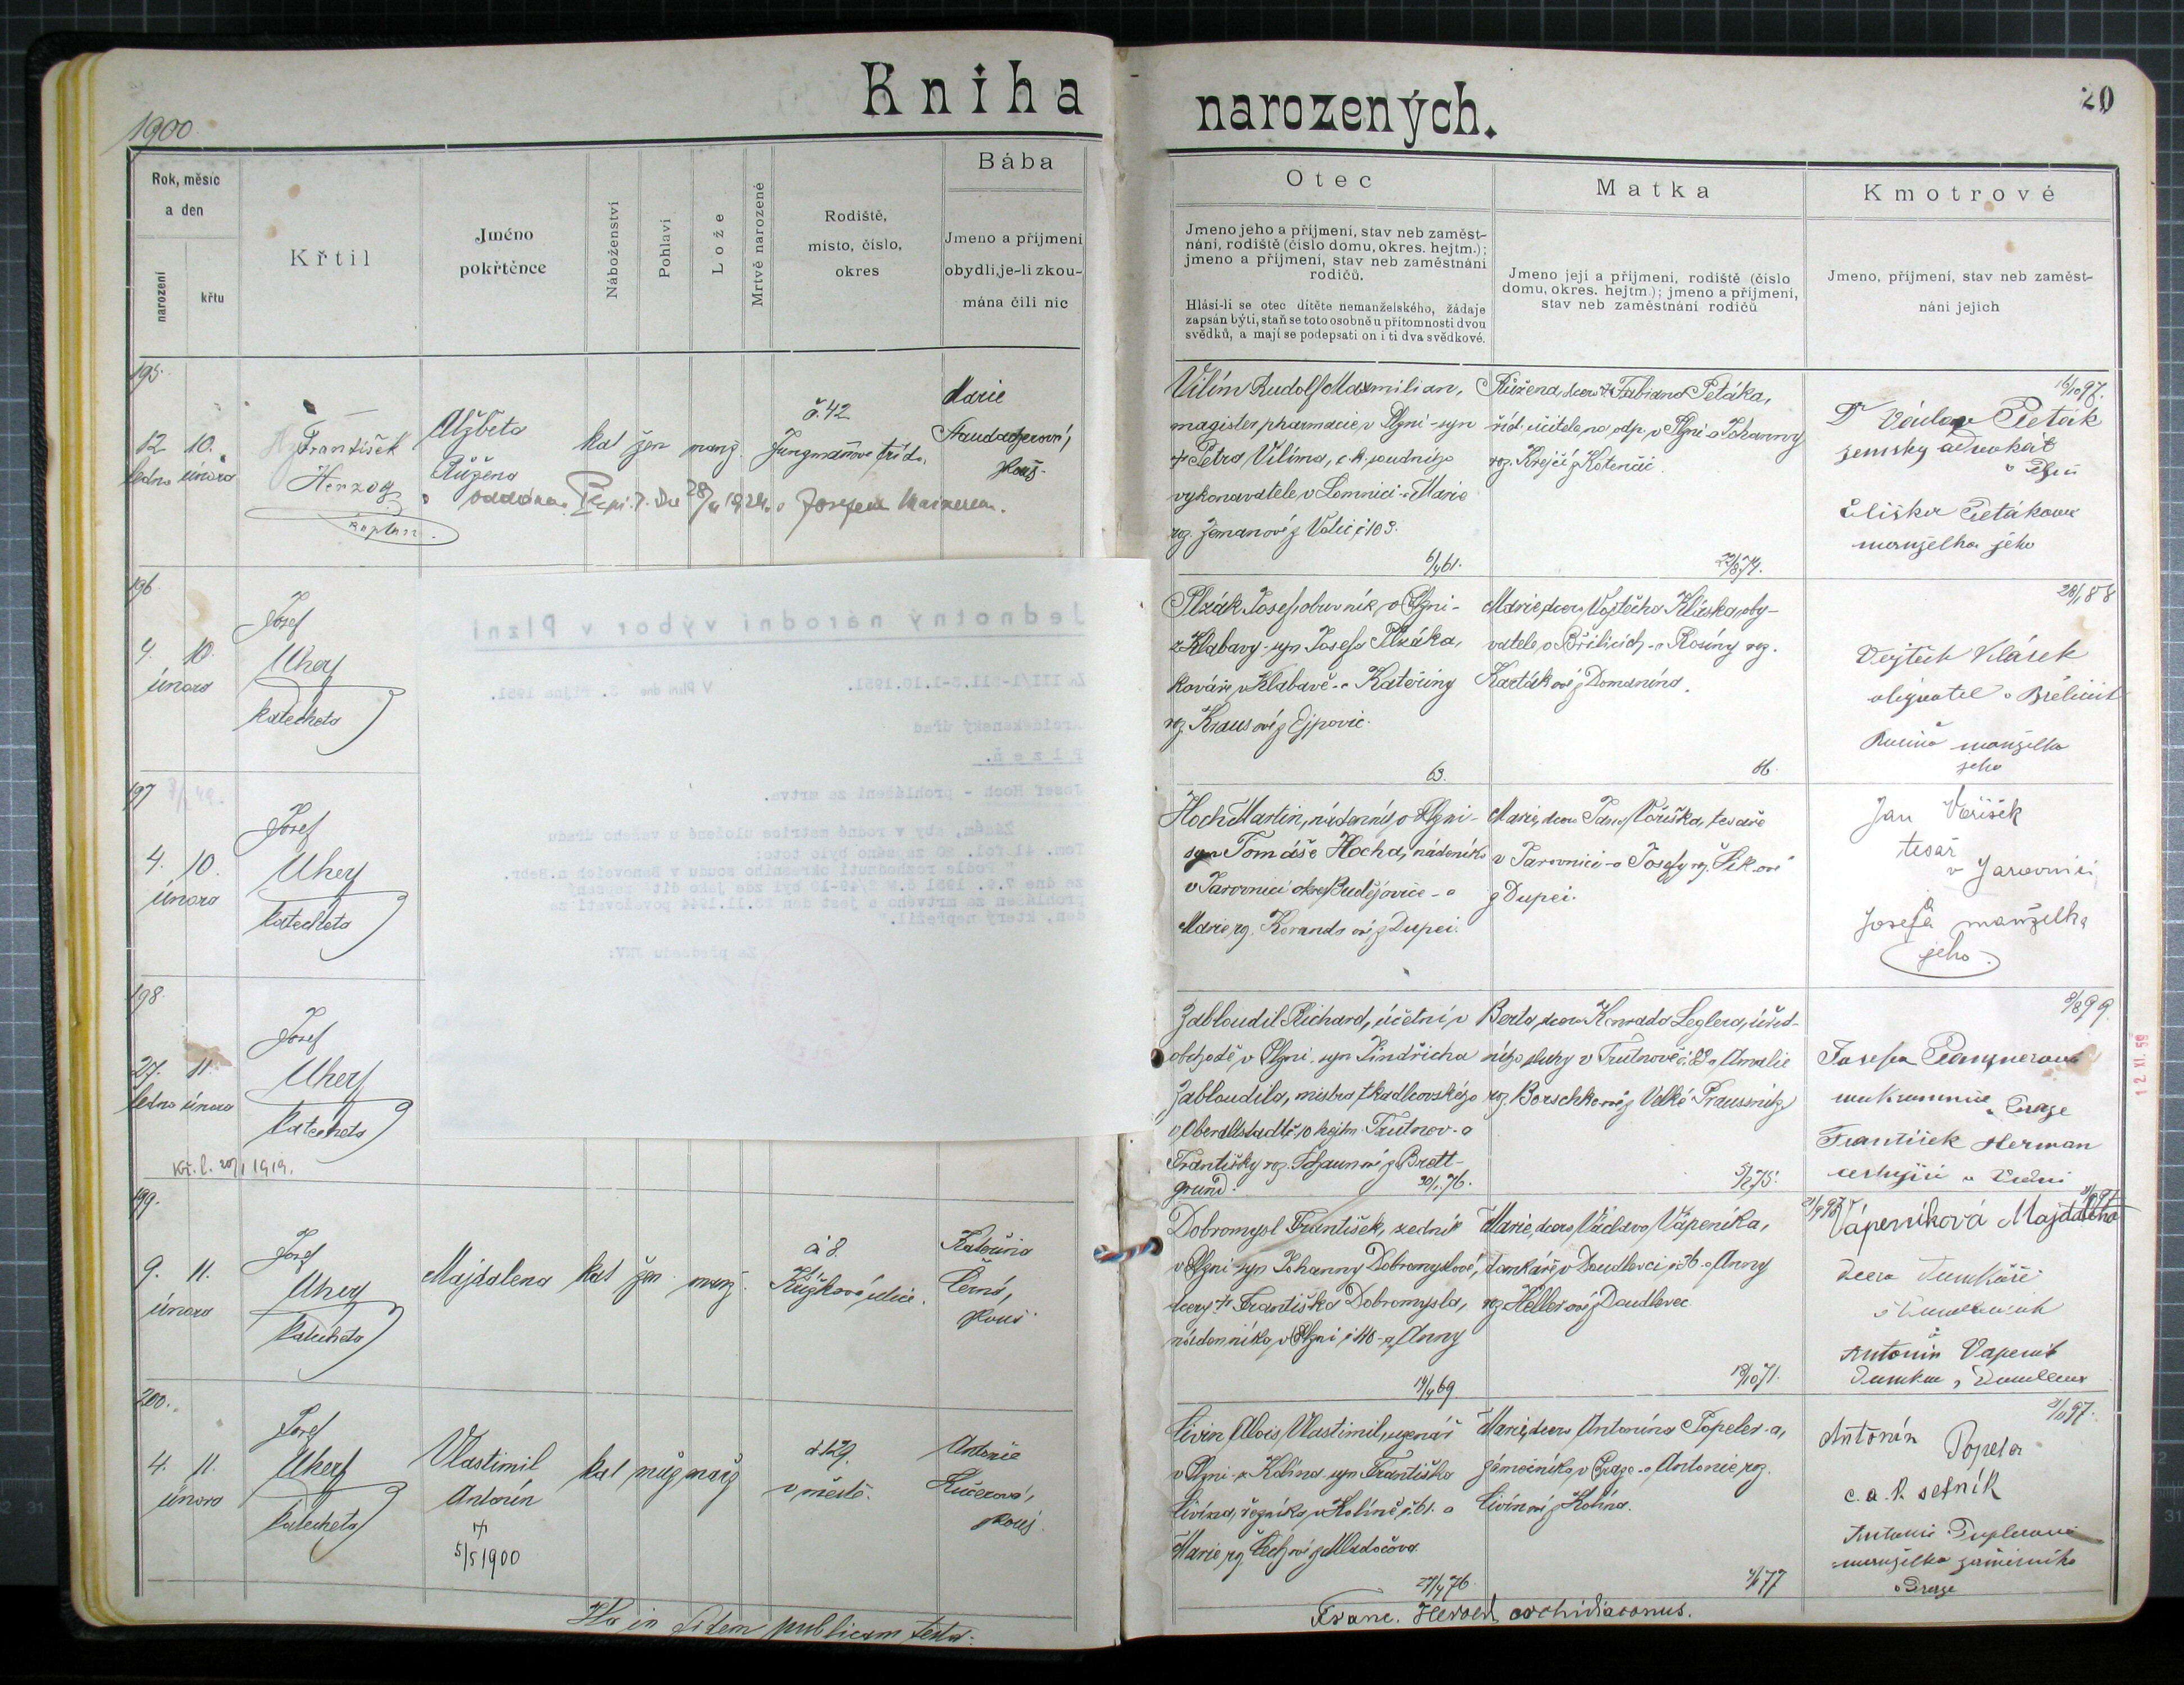 Kniha
narozených.
20
1900.
Rok, měsíc
a den
narození
křtu
Křtil
Jméno
pokřtěnce
Náboženství
Pohlaví
Lože
Mrtvě narozené
Rodiště,
místo, číslo,
okres
Bába
Jmeno a příjmení
obydlí, je-li zkou-
mána čili nic
Otec
Jmeno jeho a příjmení, stav neb zaměst-
nání, rodiště (číslo domu, okres. hejtm.);
jmeno a příjmení, stav neb zaměstnání
rodičů.
Hlásí-li se otec dítěte nemanželského, žádaje
zapsán býti, staň se toto osobně u přítomnosti dvou
svědků, a mají se podepsati on i ti dva svědkové.
Matka
Jmeno její a příjmení, rodiště (číslo
domu, okres. hejtm.); jmeno a příjmení,
stav neb zaměstnání rodičů
Kmotrové
Jmeno, příjmení, stav neb zaměst-
nání jejich
195.
12 10.
ledna února
František
Herzog
kaplan.
Alžběta
Růžena
kat žen manž.
č. 42
Jungmannova třída.
Marie
zkouš.
oddána 1924 s Josefem
Vilím Rudolf Maxmilian,
magister pharmacie v Plzni - syn
† Petra Vilíma, c. k. soudního
vykonavatele v Lomnici a Marie
roz. Zemanové z Votic č 109.
6/4 61.
Růžena, dcera † Fabiana Peťáka,
říd. učitele na odp. v Plzni a Johanny
roz. Krejčí z Kotenčic.
29/8 74.
16/10 97.
Dr Václav Peťák
zemský advokát
v Plzni
Eliška Peťáková
manželka jeho
196
4. 10.
února
Josef
Uherf
katecheta
Plzák Josef, obuvník v Plzni -
z Klabavy - syn Josefa Plzáka,
kováře v Klabavě - a Kateřiny
roz. Krausové z Ejpovic.
63.
Marie, dcera Vojtěcha Kláska, oby-
vatele v Břilicích - a Rosiny roz.
Kartákové z Domanína.
66.
28/1 88
Vojtěch Klásek
obyvatel v Břilicích
manželka
jeho
197
4. 10.
února
Josef
Uherf
katecheta
Hoch Martin, nádenník v Plzni -
syn Tomáše Hocha, nádeníka
v Jarovnici okres Budějovice - a
Marie, roz. Korandové z Dupei.
Marie, dcera Jana Voříška, tesaře
v Jarovnici - a Josefy roz. Šikové
z Dupei.
Jan Voříšek
tesař
v Jarovnici
Josefa manželka
jeho.
198.
27. 11.
ledna února
Josef
Uherf
katecheta
Kř. l. 20/1 1919.
Zabloudil Richard, účetní v
obchodě v Plzni, syn Jindřicha
Zabloudila, mistra tkadlcovského
v Oberaltstadtě č. 10 hejtm. Trutnov - a
Františky roz. z Brett-
grund.
30/1 76.
Berta, dcera Konrada Leglera, úřed-
ního sluhy v Trutnově č. 82 a Amalie
roz. Borschkové z Velké Praussnitz
5/2 75.
8/8 99
Josefa
v Praze
František Herman
cestující v Vídni
12 XI. 59
199.
9. 11.
února
Josef
Uherf
katecheta
Majdalena
kat žen. manž.
č 8.
Kateřina
Černá,
zkouš
Dobromysl František, zedník
v Plzni syn Johanny Dobromyslové,
dcery † Františka Dobromysla,
nádenníka v Plzni č 40 - a Anny
14/4 69.
Marie, dcera Václava Vápeníka,
domkáře v Doudlevci č 36. a Anny
roz. Hellerové z Doudlevec.
18/10 71.
Vápeníková Majdaléna
dcera domkáře
Antonín Vapenik
200.
4. 11.
února
Josef
Uherf
katecheta
Vlastimil
Antonín
†
5/5 1900
kat muž manž
č 129.
v městě.
Antonie
Kučerová,
zkouš.
Livín Alois Vlastimil,
v Plzni - z Kolína syn Františka
Livína, řezníka v Kolíně č. 61. a
Marie roz. Čechové z Mladočova.
27/4 76.
Marie, dcera Antonína Popelera,
zámečníka v Praze - a Antonie roz.
Livínové z Kolína.
77
21/10 97.
Antonín Popela
c. a. k. setník
Antonie
manželka zámečníka
v Praze
Ita in fidem publicam testor:
Franc. Herold, archidiaconus.
Jednotný národní výbor v Plzni
Zn III/1-311.3-1.10.1951.
V Plzni dne 3. října 1951.
Arciděkanský úřad
Plzeň.
Josef Hoch - prohlášení za mrtva.
Žádám, aby v rodné matrice uložené u vašeho úřadu
Tom. 41 fol. 20 zapsáno bylo toto:
Podle rozhodnutí okresního soudu v Bánovcích n.Bebr.
ze dne 7.9. 1951 č.j. byl zde jako dítě zapsaný
prohlášen za mrtvého a jest den 23.11.1944 považovati za
den, který nepřežil."
Za předsedu JNV: